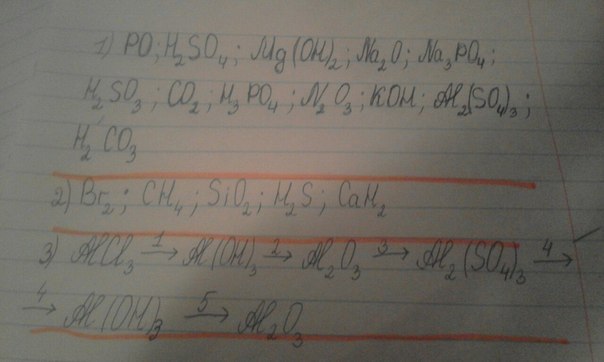 1) PO; H₂SO₄; Mg(OH)₂; Na₂O; Na₃PO₄;
H₂SO₃; CO₂; H₃PO₄; N₂O₃; KOH; Al₂(SO₄)₃;
H₂CO₃
2) Br₂; CH₄; SiO₂; H₂S; CaH₂
3) AlCl₃ 1→ Al(OH)₃ 2→ Al₂O₃ 3→ Al₂(SO₄)₃ 4→
4→ Al(OH)₃ 5→ Al₂O₃